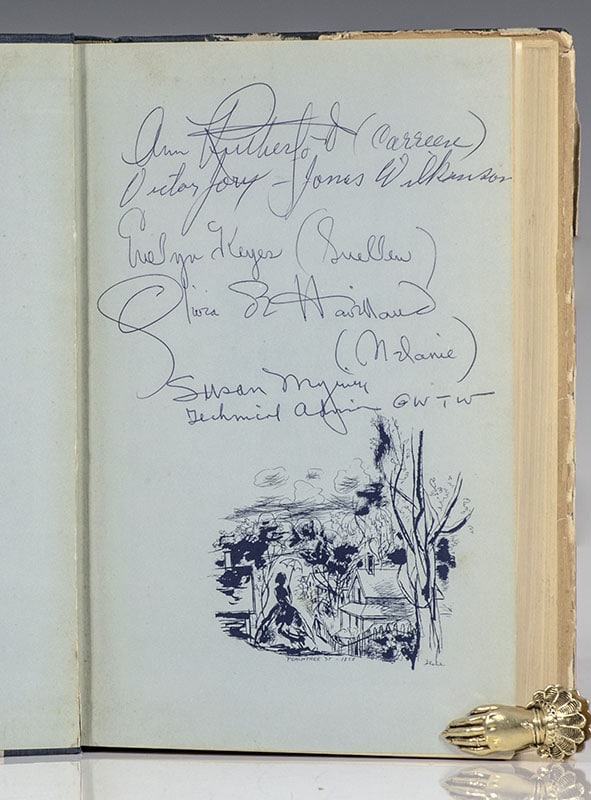 Ann Rutherford (Carreen)
Victor Jory - Jonas Wilkerson
Evelyn Keyes (Suellen)
Olivia de Havilland
(Melanie)
Susan Myrick
Technical Advisor GWTW
PEACHTREE ST - 1878